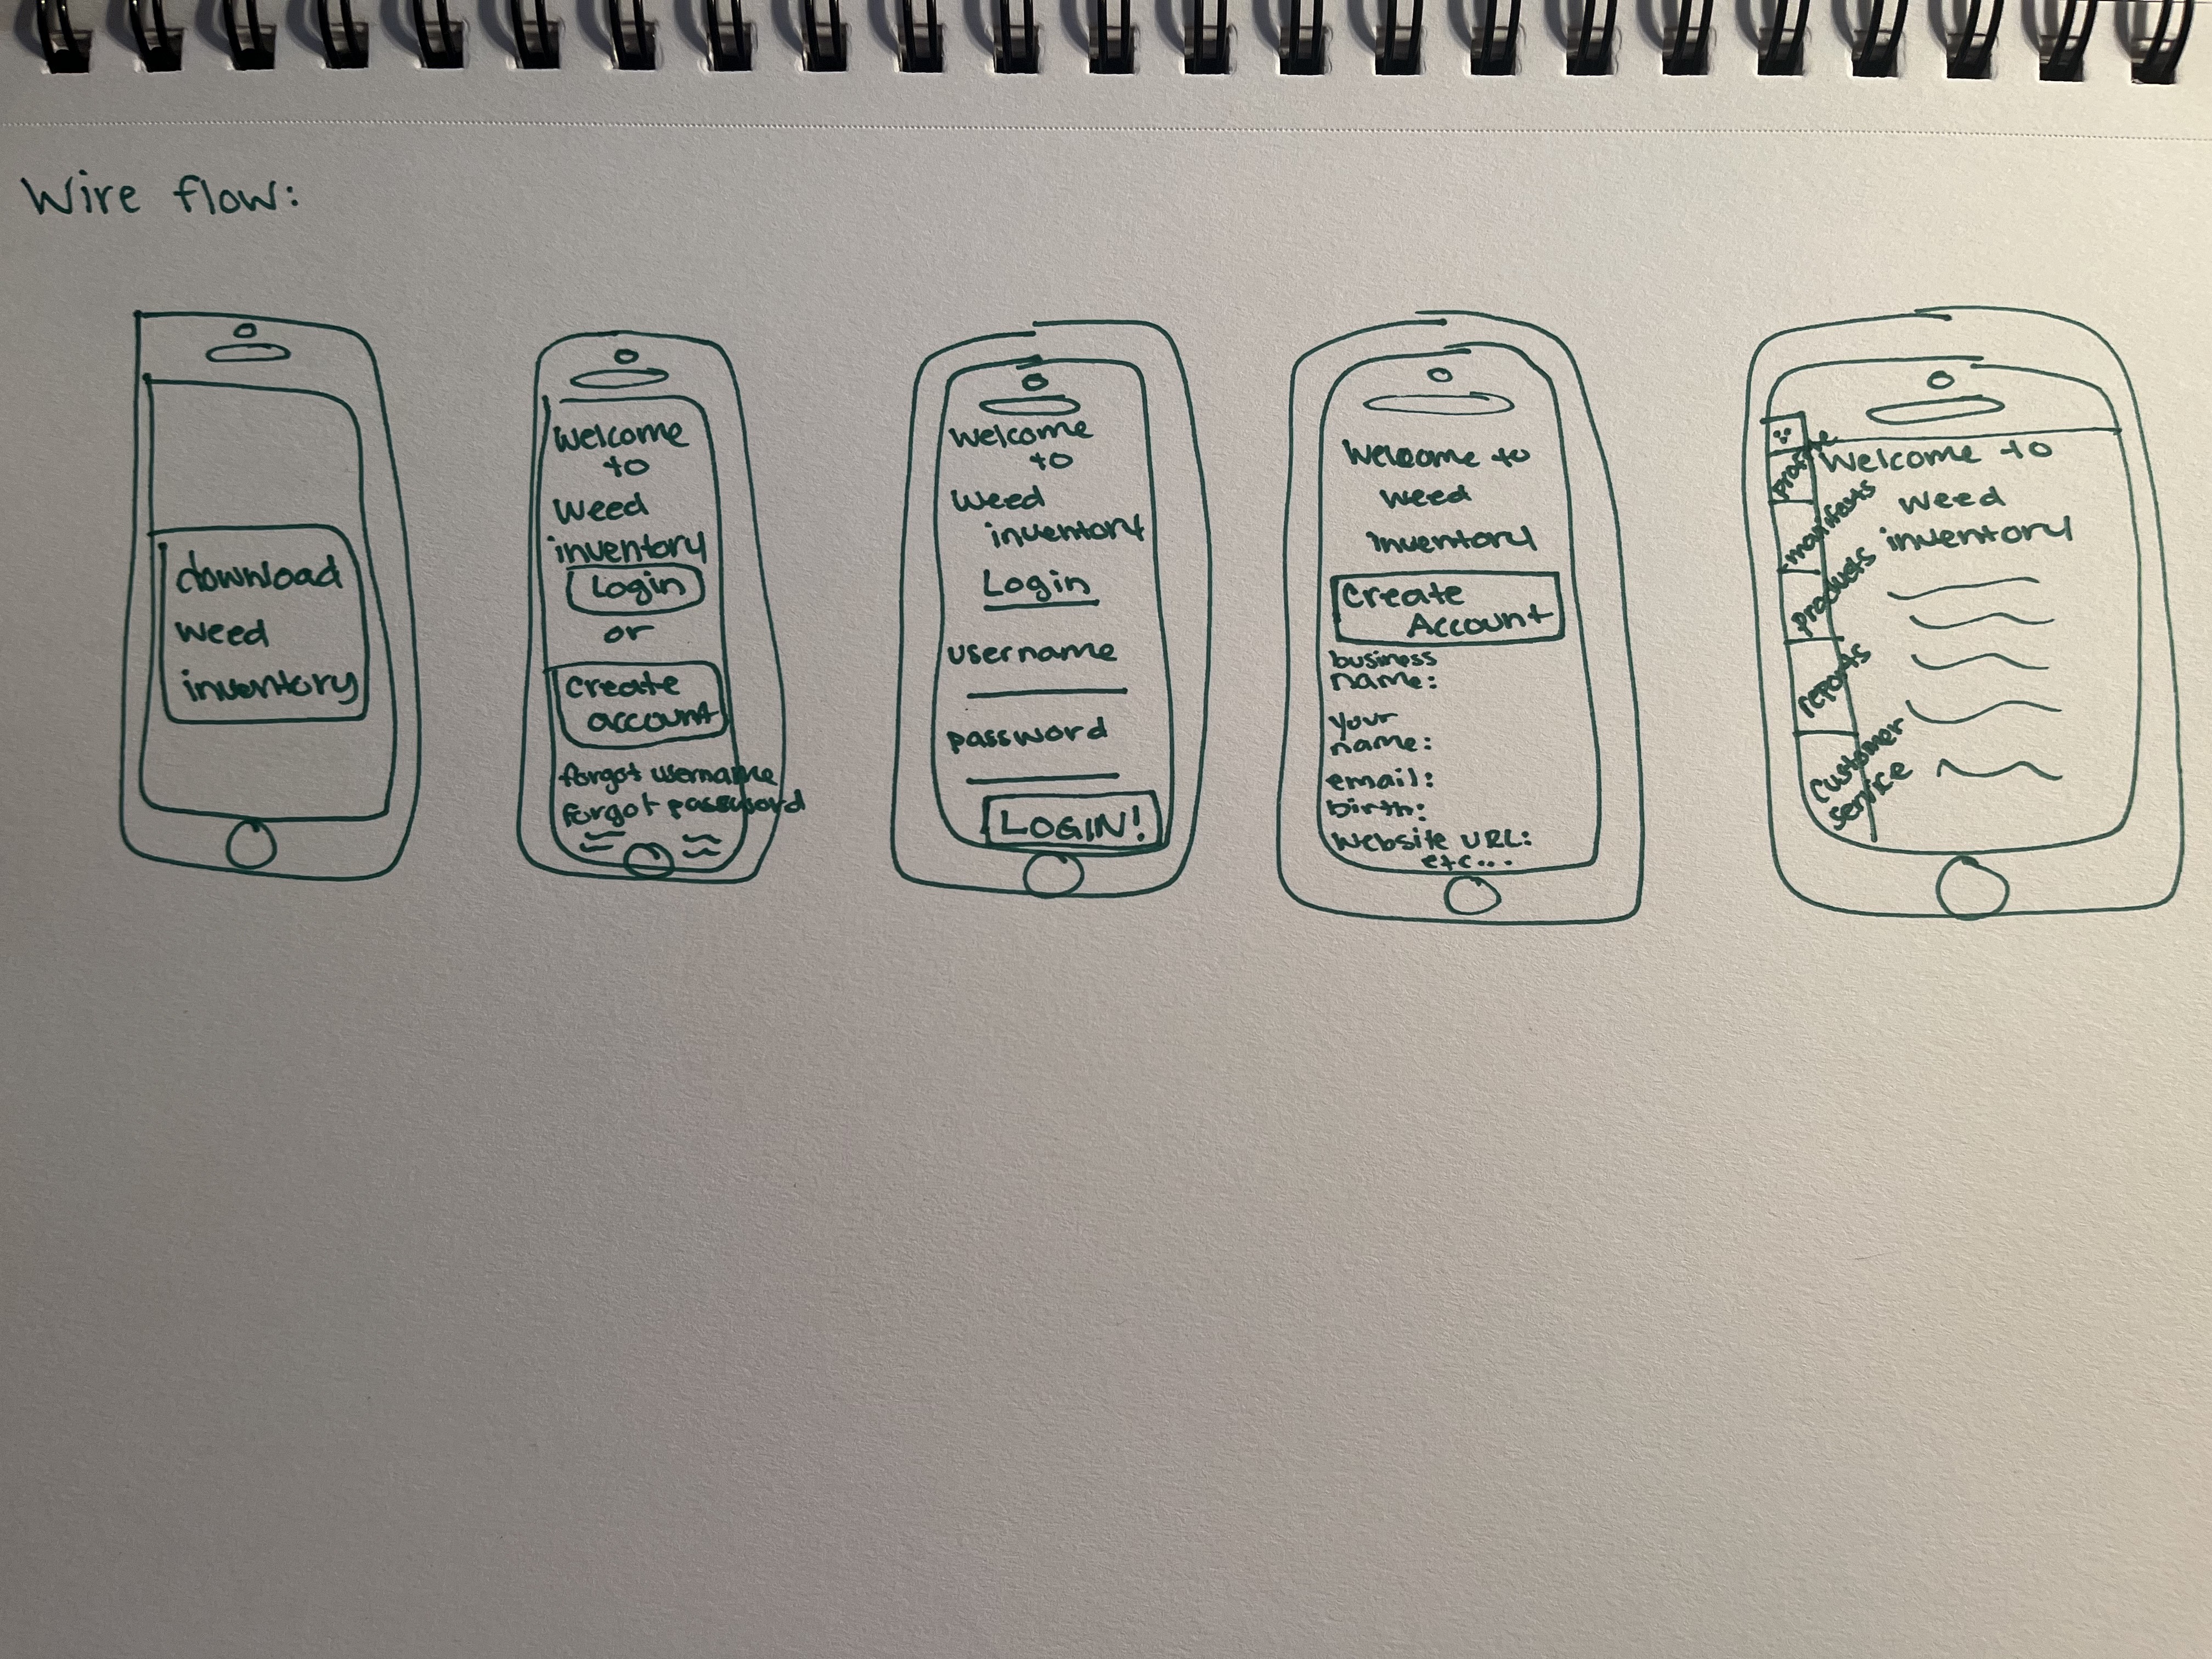 Wire flow:
download
weed
inventory
Welcome
to
Weed
inventory
Login
or
create
account
forgot username
forgot password
Welcome
to
Weed
inventory
Login
username
password
LOGIN!
Welcome to
Weed
Inventory
Create
Account
business
name:
your
name:
email:
birth:
Website URL:
etc...
Profile
manifests
Products
reports
Customer
Service
Welcome to
Weed
inventory